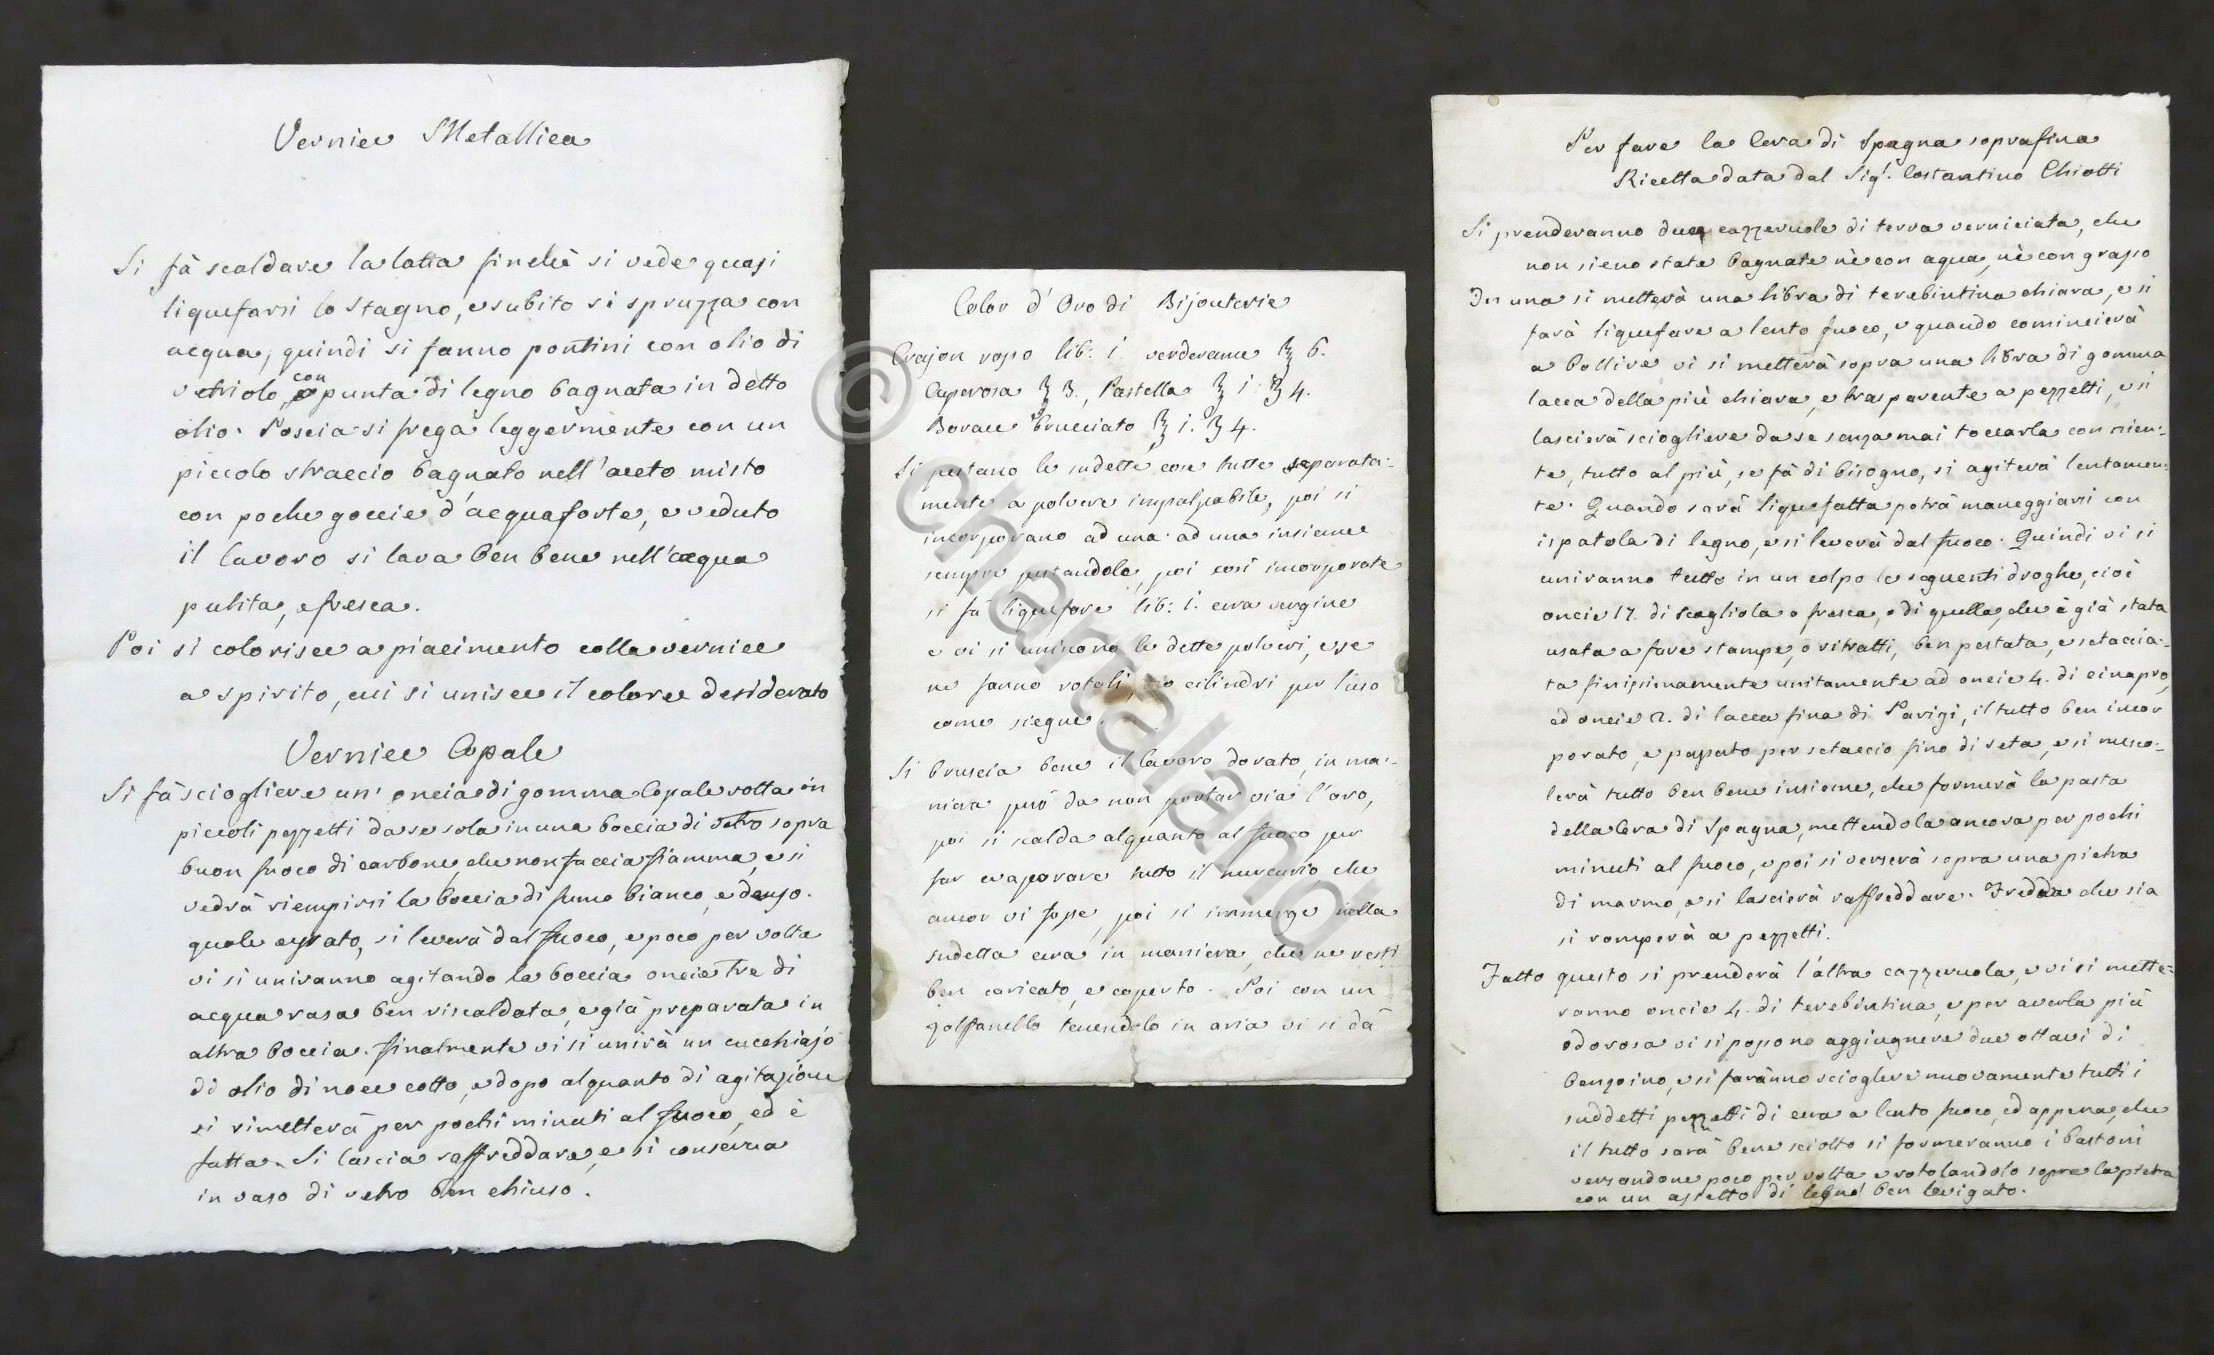 Vernice Metallica
Si fà scaldare la latta finchè si vede quasi
liquefarsi lo stagno, e subito si spruzza con
acqua, quindi si fanno pontini con olio di
vetriolo, con punta di legno bagnata in detto
olio. Poscia si frega leggermente con un
piccolo straccio bagnato nell'aceto misto
con poche goccie d'acquaforte, e veduto
il lavoro si lava ben bene nell'acqua
pulita, e fresca.
Poi si colorisce a piacimento colla vernice
a spirito, cui si unisce il colore desiderato
Vernice Copale
Si fà sciogliere un' oncia di gomma Copale rotta in
piccoli pezzetti da se sola in una boccia di vetro sopra
buon fuoco di carbone, che non faccia fiamma, e si
vedrà riempirsi la boccia di fumo bianco, e denso.
quale cessato, si leverà dal fuoco, e poco per volta
vi si uniranno agitando la boccia oncie tre di
acqua rasa ben riscaldata, e già preparata in
altra boccia. finalmente vi si unirà un cucchiajo
di olio di noce cotto, e dopo alquanto di agitazione
si rimetterà per pochi minuti al fuoco, ed è
fatta. Si lascia raffreddare, e si conserva
in vaso di vetro ben chiuso.
Color d'Oro di Bijouterie
Crajon rosso lib: i. verderame ℥ 6.
Cuperosa ℥ 3., Pastella ℥ i ʒ 4.
Borace brucciato ℥ i. ʒ 4.
Si pestano le sudette cose tutte separata:
mente a polvere impalpabile, poi si
incorporano ad una ad una insieme
sempre pestandole, poi così incorporate
si fà liquefare lib: i. cera vergine
e vi si uniscono le dette polveri, e se
ne fanno rotoli, o cilindri per l'uso
come siegue.
Si bruscia bene il lavoro dorato, in ma:
niera però da non portar via l'oro,
poi si scalda alquanto al fuoco per
far evaporare tutto il mercurio che
ancor vi fosse, poi si immerge nella
sudetta cera in maniera, che ne resti
ben caricato, e coperto. Poi con un
zolfanello tenendolo in aria vi si dà
©chartaland
Per fare la Cera di Spagna soprafina
Ricetta data dal Sig.r Costantino Chiotti
Si prenderanno due cazzeruole di terra verniciata, che
non sieno state bagnate nè con aqua, nè con grasso
In una si metterà una libra di terebintina chiara, e si
farà liquefare a lento fuoco, e quando comincierà
a bollire vi si metterà sopra una libra di gomma
lacca della più chiara, e trasparente a pezzetti, e si
lascierà sciogliere da se senza mai toccarla con nien:
te, tutto al più, se fà di bisogno, si agiterà lentamen:
te. Quando sarà liquefatta potrà maneggiarsi con
ispatola di legno, e si leverà dal fuoco. Quindi vi si
uniranno tutto in un colpo le seguenti droghe, cioè
oncie 17. di Scagliola o fresca, o di quella, che è già stata
usata a fare stampe, o ritratti, ben pestata, e setaccia:
ta finissimamente unitamente ad oncie 4. di cinapro,
ed oncie 2. di lacca fina di Parigi, il tutto ben incor
porato, e passato per setaccio fino di seta, e si mesco:
lerà tutto ben bene insieme, che formerà la pasta
della Cera di Spagna, mettendola ancora per pochi
minuti al fuoco, e poi si verserà sopra una pietra
di marmo, e si lascierà raffreddare. Fredda che sia
si romperà a pezzetti.
Fatto questo si prenderà l'altra cazzeruola, e vi si mette:
ranno oncie 4. di terebintina, e per averla più
odorosa vi si possono aggiugnere due ottavi di
benzoino, e si faranno sciogliere nuovamente tutti i
suddetti pezzetti di cera a lento fuoco, ed appena, che
il tutto sarà bene sciolto si formeranno i bastoni
versandone poco per volta, e rotolandolo sopra la pietra
con un assetto di legno ben levigato.